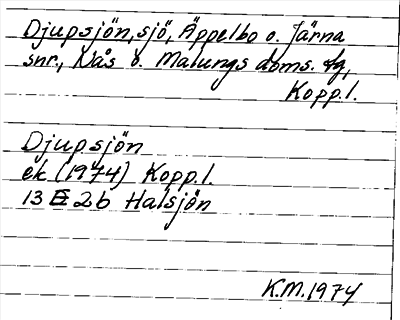 Djupsjön, sjö, Äppelbo o. Järna
snr., Nås o. Malungs doms. fg,
Kopp.l.
Djupsjön
ek (1974) Kopp.l.
13 E 2b Halsjön
K.M. 1974